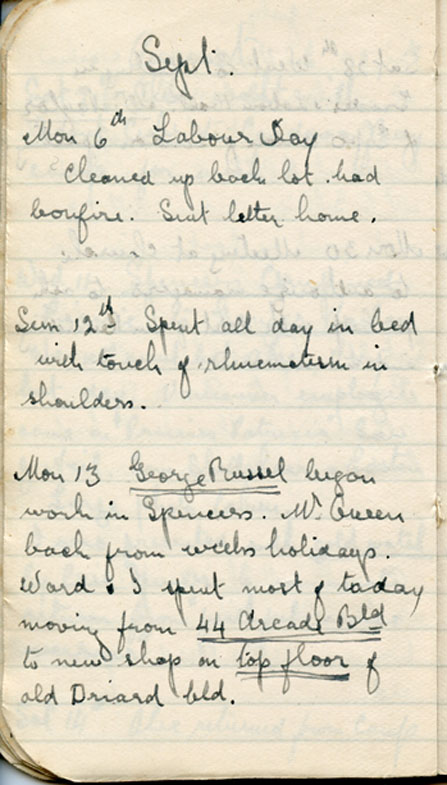 Sept.
Mon 6th Labour Day
Cleaned up back lot. had
bonfire. Sent letter home.
Sun 12th Spent all day in bed
with touch of rhuematism in
shoulders.
Mon 13 George Russel began
work in Spencers. Mr Green
back from weeks holidays.
Ward & I spent most of today
moving from 44 Arcade Bld
to new shop on top floor of
old Driard bld.